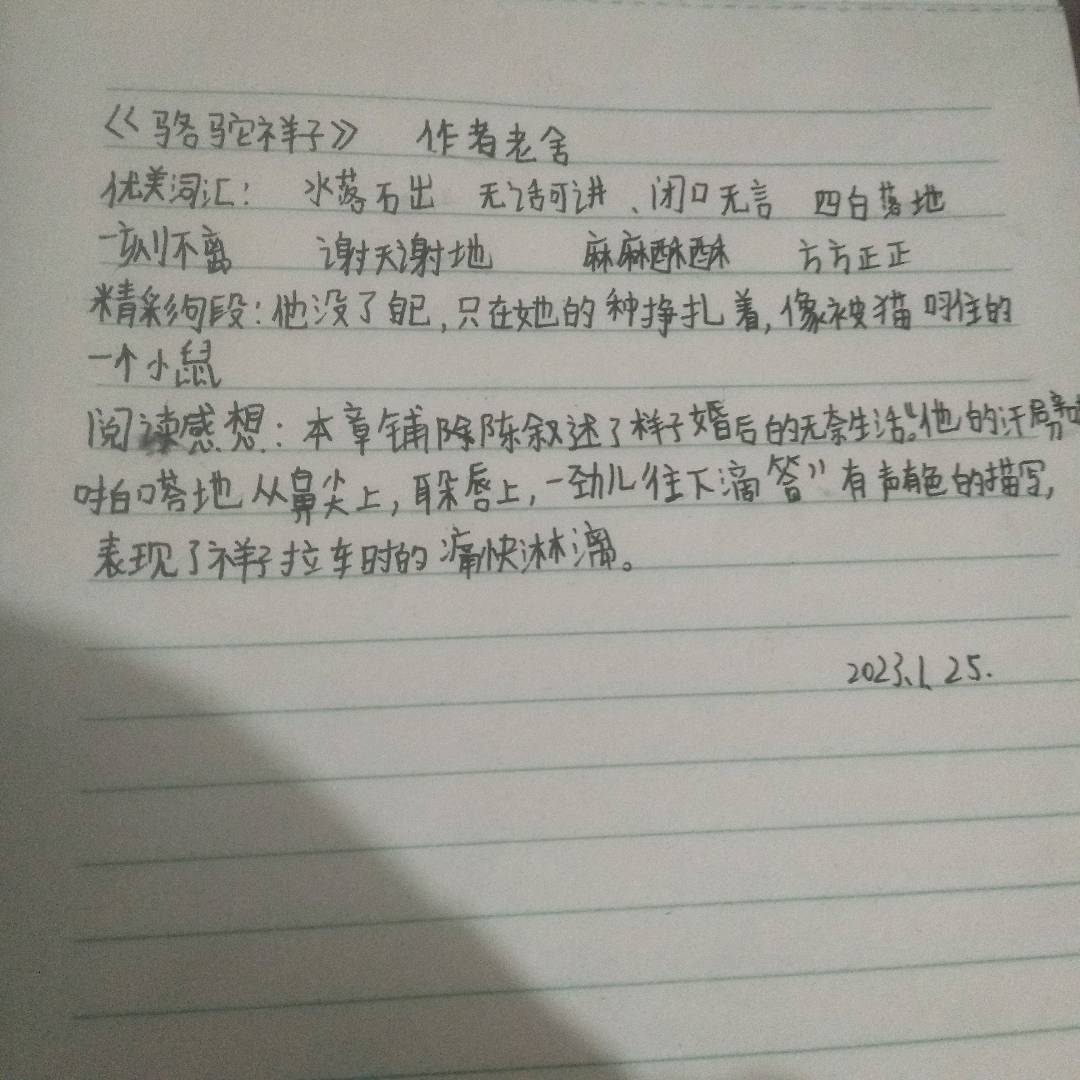 《骆驼祥子》 作者老舍
优美词汇: 水落石出 无话可讲、闭口无言 四白落地
一刻不离 谢天谢地 麻麻酥酥 方方正正
精彩句段:他没了自己,只在她的种挣扎着,像被猫叼住的
一个小鼠
阅读感想:本章铺陈叙述了祥子婚后的无奈生活。“他的汗
啪嗒地从鼻尖上,脸唇上,一劲儿往下滴答”有声有色的描写,
表现了祥子拉车时的痛快淋漓。
2023.1.25.